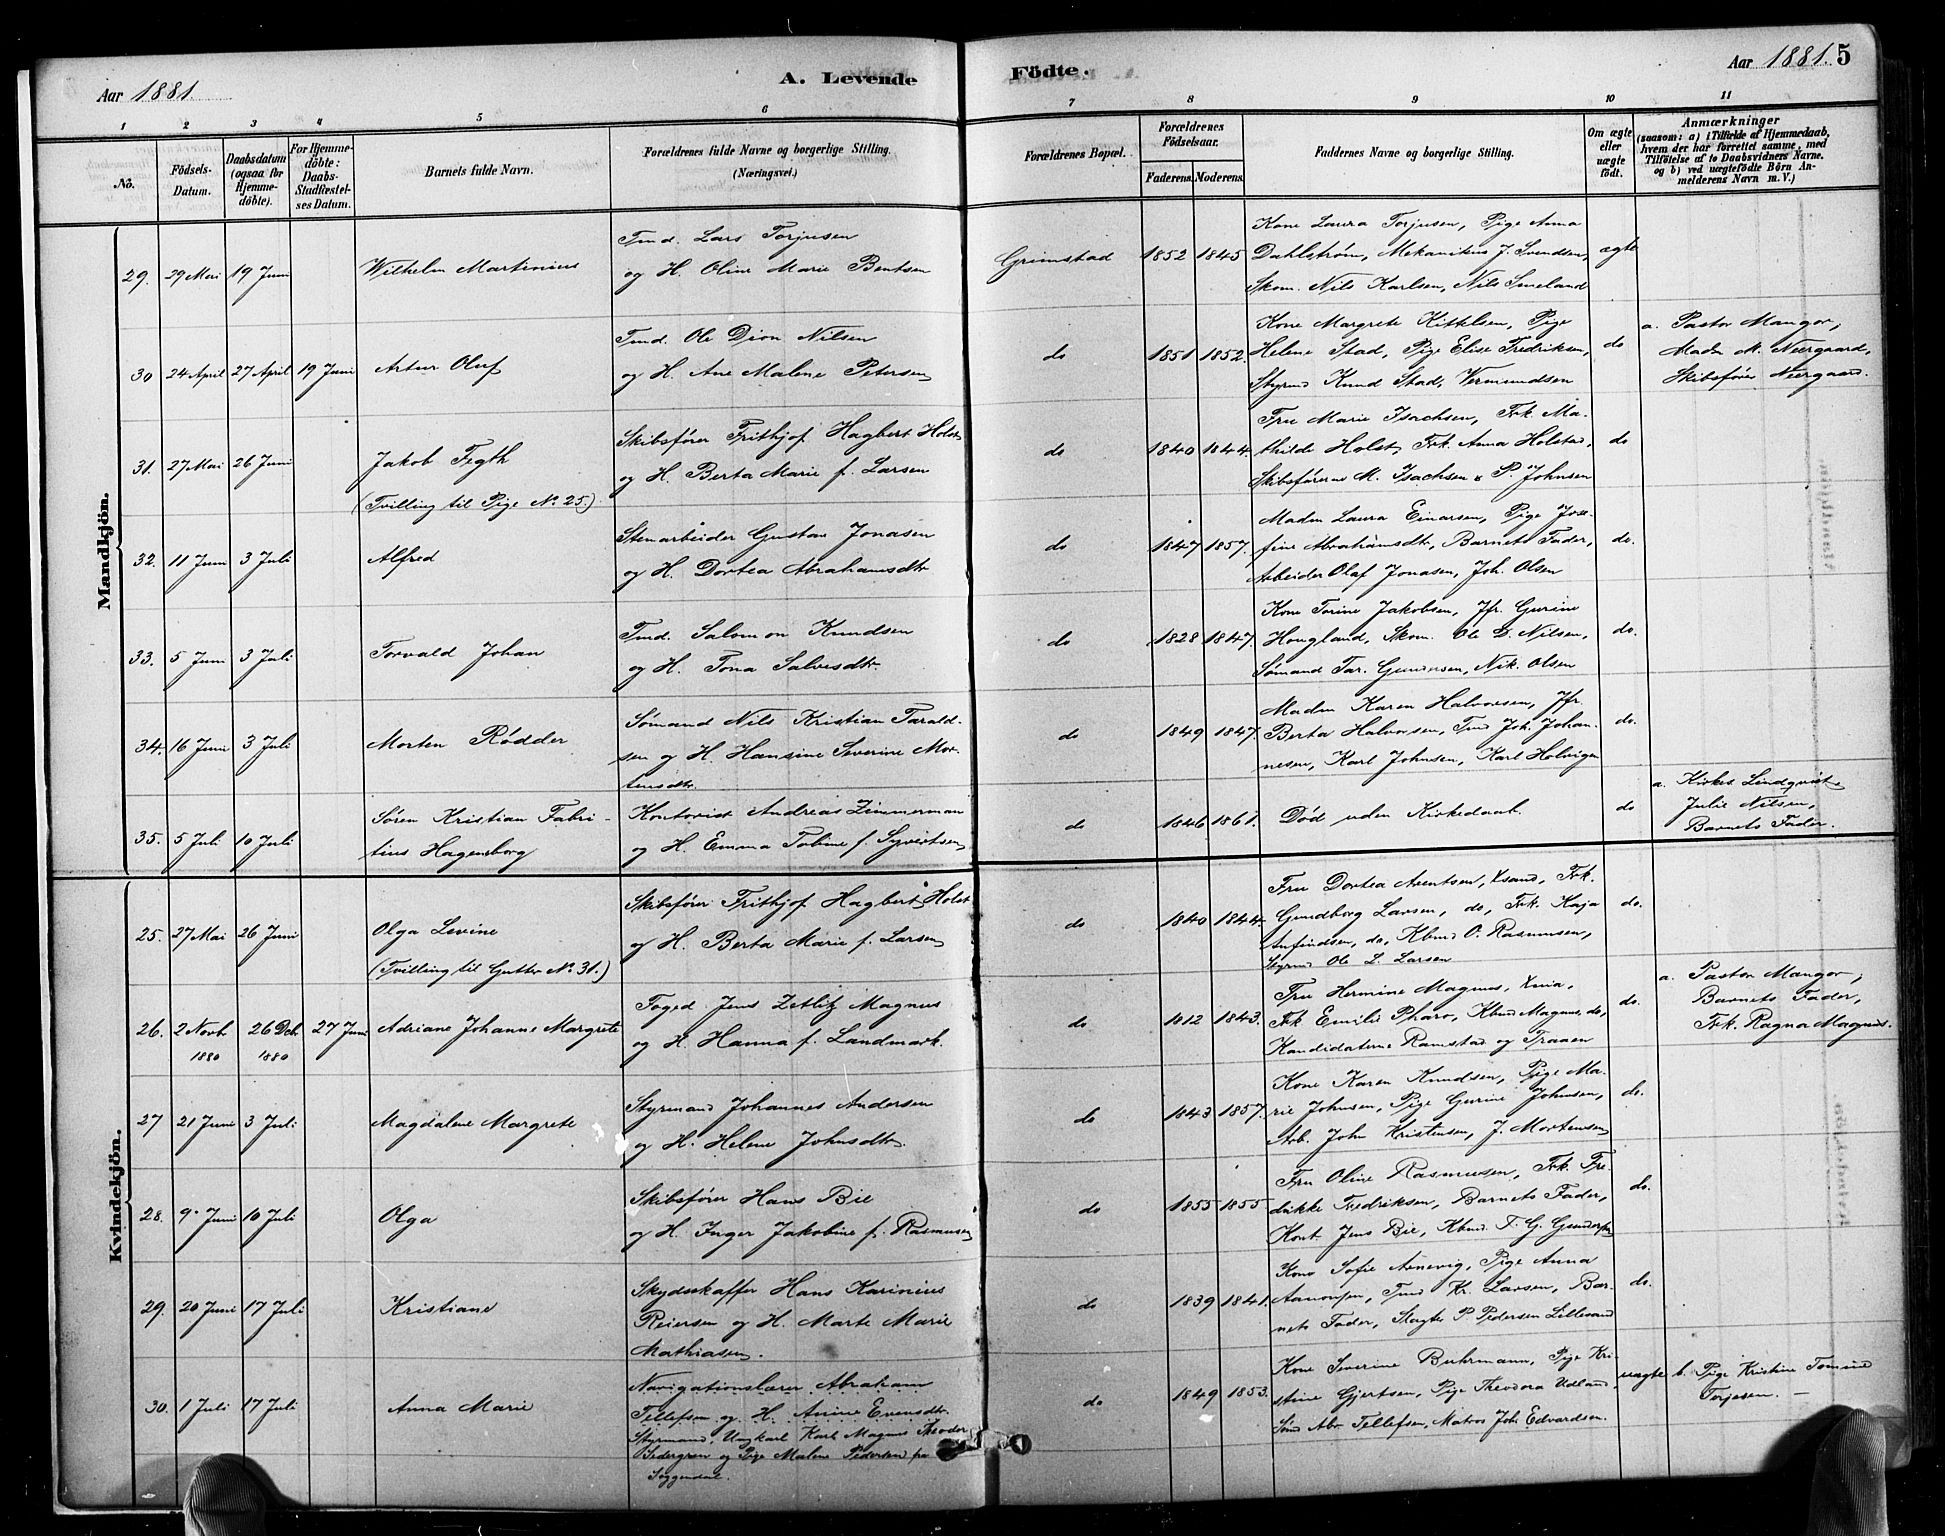 Aar 1881.
A. Levende Födte.
Aar 1881. 5
1 2 3 4 5 6 7 8 9 10 11
No.
Födsels-Datum.
Daabsdatum (ogsaa for Hjemmedöbte).
For Hjemmedöbte: Daabs-Stadfæstelses Datum.
Barnets fulde Navn.
Forældrenes fulde Navne og borgerlige Stilling.
(Næringsvei.)
Forældrenes Bopæl.
Forældrenes Födselsaar.
Faderens. Moderens.
Faddernes Navne og borgerlige Stilling.
Om ægte eller uægte födt.
Anmærkninger
(saasom: a) i Tilfælde af Hjemmedaab, hvem der har forrettet samme, med Tilföielse af to Daabsvidners Navne, og b) ved uægtefödte Börn Anmelderens Navn m. V.)
Mandkjön.
29. 29 Mai 19 Juni
Wilhelm Martinius
Tmd. Lars Torjusen
og H. Oline Marie Bentsen
Grimstad 1852 1845
Kone Laura Torjusen, Pige Anna
Dahlstrøm, Mekanikus J. Svendsen,
Skom. Nils Karlsen, Nils Smeland
ægte
30 24 April 27 April 19 Juni
Artur Oluf
Tmd. Ole Dion Nilsen
og H. Ane Malene Petersen
do 1851 1852
Kone Margrete Kittelsen, Pige
Helene Stad, Pige Elise Fredriksen,
Styrmd Knud Stad, Vermundsen
do
a. Pastor Mangor,
Madm M. Neergaard,
Skibsfører Neergaard.
31. 27 Mai 26 Juni
Jakob Figth
(Tvilling til Pige No. 25.)
Skibsfører Frithjof Hagbert Holst
og H. Berta Marie f. Larsen
do 1840 1844
Fru Marie Isachsen, Frk. Ma-
thilde Holst, Frk. Anna Holstad,
Skibsførerne M. Isachsen & P. Johnsen
do
32. 11 Juni 3 Juli
Alfred
Stenarbeider Gustav Jonasen
og H. Dortea Abrahamsdtr
do 1847 1857.
Madm Laura Einarsen, Pige Jose-
fine Abrahamsdtr, Barnets Fader,
Arbeider Olaf Jonasen, Joh. Olsen
do.
33. 5 Juni 3 Juli
Torvald Johan
Tmd. Salomon Knudsen
og H. Tona Salvesdtr
do 1828 1847.
Kone Torine Jakobsen, Jfr. Gurine
Hougland, Skom. Ole D. Nilsen,
Sømand Tar. Gundersen, Nik. Olsen
do.
34. 16 Juni 3 Juli
Morten Rødder
Sømand Nils Kristian Tarald-
sen og H. Hansine Severine Mor-
tensdtr.
do 1849 1847.
Madm Karen Halvorsen, Jfr
Berta Halvorsen, Tmd Joh. Johan-
nesen, Karl Johnsen, Karl Holvigen
do.
35. 5 Juli 10 Juli
Søren Kristian Fabri-
tius Hagensborg
Kontorist Andreas Zimmerman
og H. Emma Tobine f. Syvertsen
do 1846 1861.
Død uden Kirkedaab.
do
a. Kirkes. Lindqvist,
Julie Nilsen,
Barnets Fader.
Kvindekjön.
25. 27 Mai 26 Juni
Olga Levine
(Tvilling til Gutten No 31.)
Skibsfører Frithjof Hagbert Holst
og H. Berta Marie f. Larsen
do 1840 1844.
Fru Dortea Arentsen, Xsand, Frk.
Gundborg Larsen, do, Frk. Kaja
Anfindsen, do, Kbmd O. Rasmusen,
Styrmd Ole L. Larsen
do.
26. 2 Novb 1880 26 Dcb 1880 27 Juni
Adriane Johanne Margrete
Foged Jens Zetlitz Magnus
og H. Hanna f. Landmark.
do 1812 1843.
Fru Hermine Magnus, Xnia,
Frk Emilie Pharo, Kbmd Magnus, do,
Kandidaterne Ramstad og Traaen
do.
a. Pastor Mangor,
Barnets Fader,
Frk. Ragna Magnus.
27 21 Juni 3 Juli
Magdalene Margrete
Styrmand Johannes Andersen
og H. Helene Johnsdtr.
do 1843 1857.
Kone Karen Knudsen, Pige Ma-
rie Johnsen, Pige Gurine Johnsen,
Arb. John Kristensen, J. Mortensen
do.
28. 9 Juni 10 Juli
Olga
Skibsfører Hans Bie
og H. Inger Jakobine f. Rasmusen
do 1855 1855
Fru Oline Rasmusen, Frk. Fre-
dikke Fredriksen, Barnets Fader,
Kont. Jens Bie, Kbmd. T. G. Gundersen
do.
29. 20 Juni 17 Juli
Kristiane
Skydsskaffer Hans Karinius
Reiersen og H. Marte Marie
Mathiasen.
do 1839 1841.
Kone Sofie Arnevig, Pige Anna
Aanonsen, Tmd Kr. Larsen, Bar-
nets Fader, Slagter P. Pedersen Lillesand
do.
30. 1 Juli 17 Juli
Anna Marie
Navigationslærer Abraham
Tellefsen og H. Anine Evensdtr.
Styrmand, Ungkarl Karl Magnus Theodor
Sedergren og Pige Malene Pedersen fra
Soggendal.
do 1849 1853.
Kone Severine Buhrmann, Pige Kri-
stine Gjertsen, Pige Theodora Udland,
Sind Abr Tellefsen, Matros Joh Edvardsen.
uægte
b. Pige Kristine Tomine
Torjesen. —